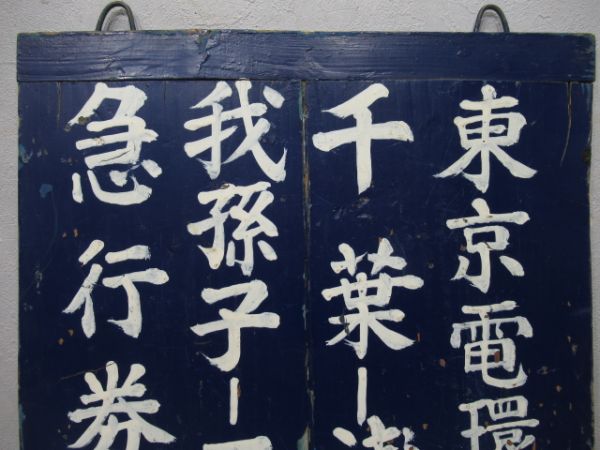 東京電環
千葉ー
我孫子ー
急行券